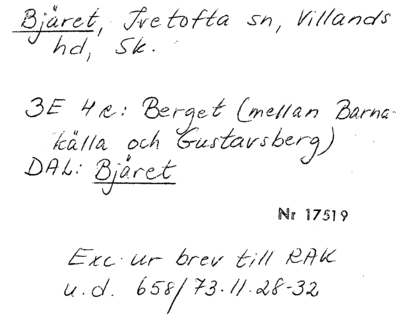 Bjäret, Ivetofta sn, Villands
hd, Sk.
3E 4c: Berget (mellan Barna-
källa och Gustavsberg)
DAL: Bjäret
Nr 17519
Exc. ur brev till RAK
u.d. 658/73.11.28-32